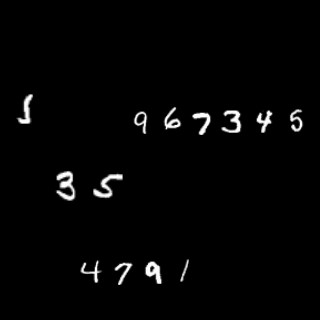 967345
35
4791